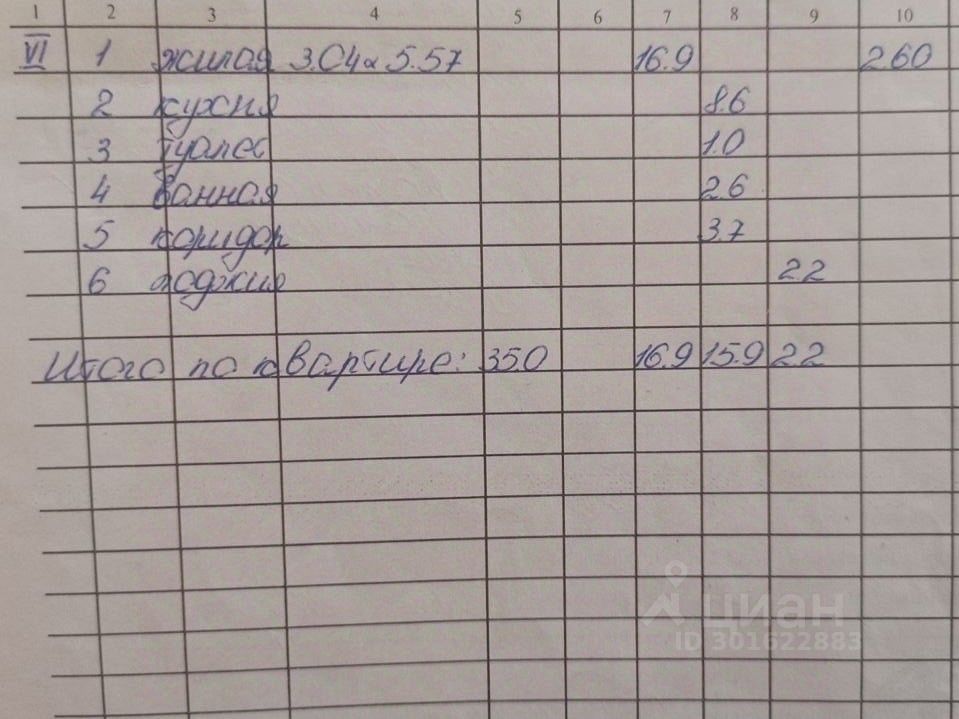 1 2 3 4 5 6 7 8 9 10
VI 1 жилая 3.04x5.57 16.9 2.60
2 кухня 8.6
3 туалет 1.0
4 ванная 2.6
5 коридор 3.7
6 лоджия 2.2
Итого по квартире: 35.0 16.9 15.9 2.2
циан
ID 301622883